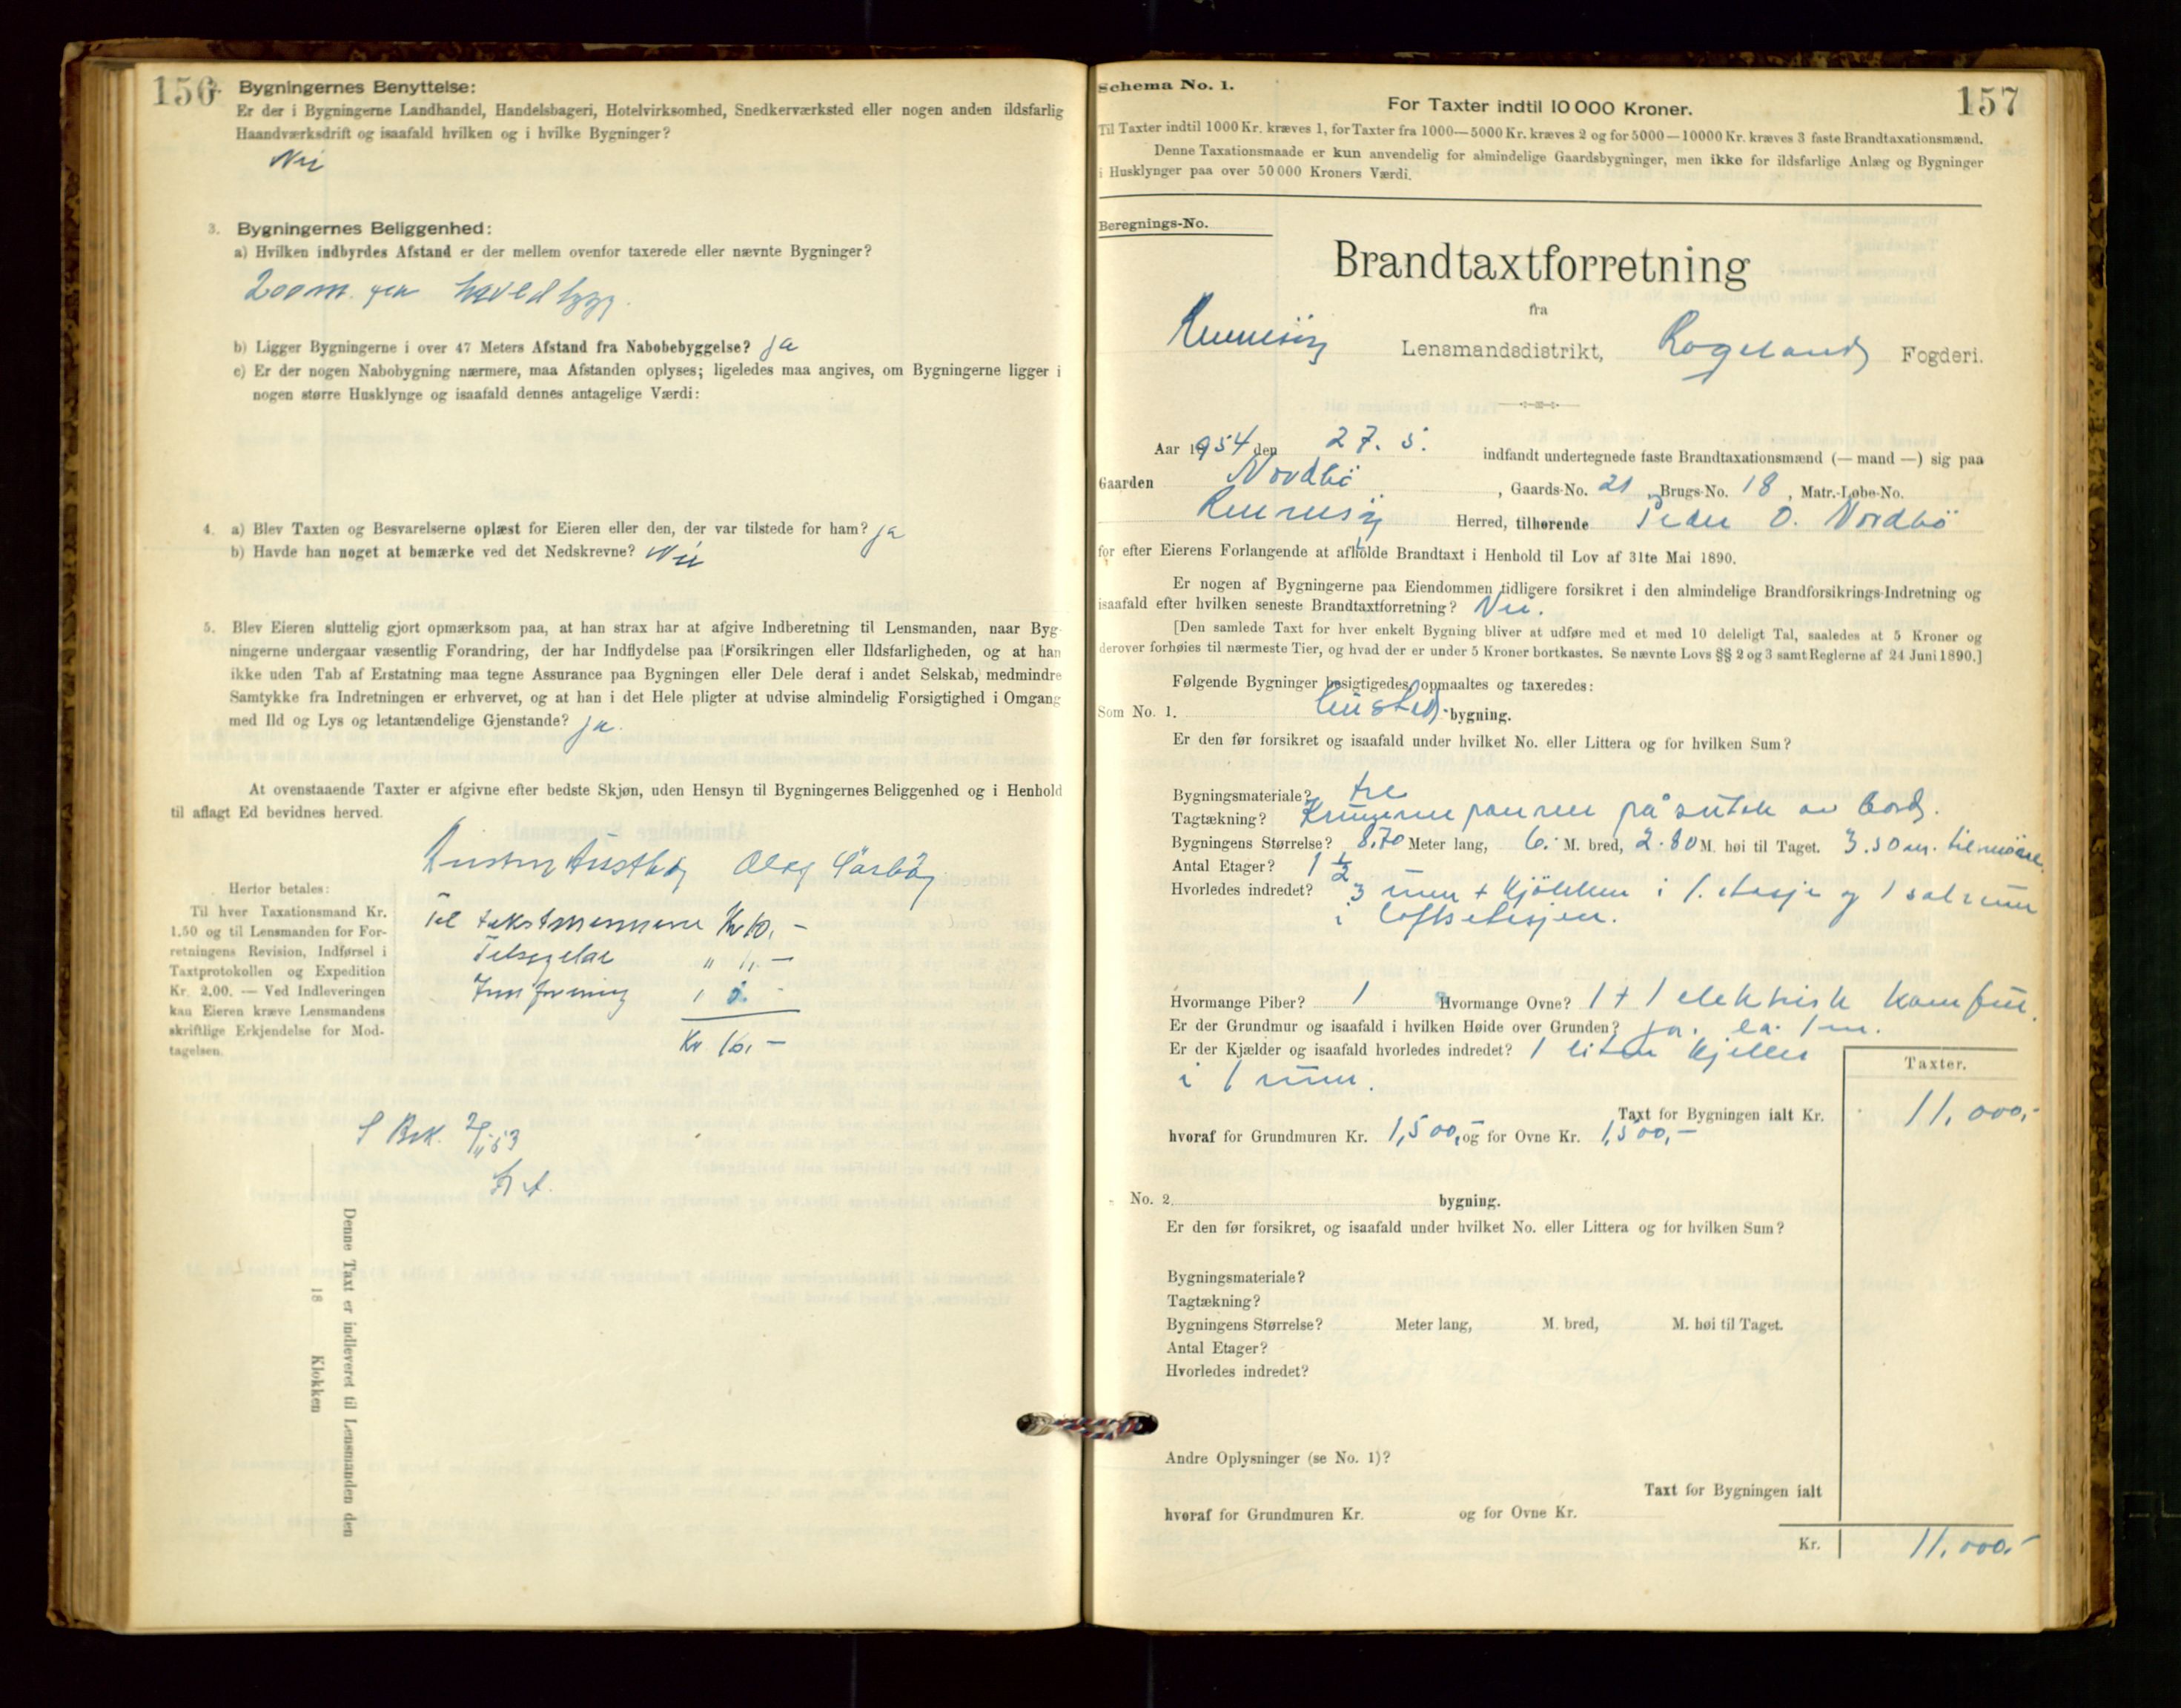 156
Bygningernes Benyttelse:
Er der i Bygningerne Landhandel, Handelsbageri, Hotelvirksomhed, Snedkerværksted eller nogen anden ildsfarlig
Haandværksdrift og isaafald hvilken og i hvilke Bygninger?
Nei
3. Bygningernes Beliggenhed:
a) Hvilken indbyrdes Afstand er der mellem ovenfor taxerede eller nævnte Bygninger?
200 m. fra hovedbygg.
b) Ligger Bygningerne i over 47 Meters Afstand fra Nabobebyggelse? ja
c) Er der nogen Nabobygning nærmere, maa Afstanden oplyses; ligeledes maa angives, om Bygningerne ligger i
nogen større Husklynge og isaafald dennes antagelige Værdi:
4. a) Blev Taxten og Besvarelserne oplæst for Eieren eller den, der var tilstede for ham? ja
b) Havde han noget at bemærke ved det Nedskrevne? Nei
5. Blev Eieren sluttelig gjort opmærksom paa, at han strax har at afgive Indberetning til Lensmanden, naar Byg-
ningerne undergaar væsentlig Forandring, der har Indflydelse paa Forsikringen eller Ildsfarligheden, og at han
ikke uden Tab af Erstatning maa tegne Assurance paa Bygningen eller Dele deraf i andet Selskab, medmindre
Samtykke fra Indretningen er erhvervet, og at han i det Hele pligter at udvise almindelig Forsigtighed i Omgang
med Ild og Lys og letantændelige Gjenstande? ja.
At ovenstaaende Taxter er afgivne efter bedste Skjøn, uden Hensyn til Bygningernes Beliggenhed og i Henhold
til aflagt Ed bevidnes herved.
Herfor betales:
Til hver Taxationsmand Kr.
1.50 og til Lensmanden for For-
retningens Revision, Indførsel i
Taxtprotokollen og Expedition
Kr. 2.00. — Ved Indleveringen
kan Eieren kræve Lensmandens
skriftlige Erkjendelse for Mod-
tagelsen.
Til takstmennene Kr 10,-
Kr. 16,-
Denne Taxt er indleveret til Lensmanden den
18 Klokken
157
Schema No. 1.
For Taxter indtil 10 000 Kroner.
Til Taxter indtil 1000 Kr. kræves 1, for Taxter fra 1000—5000 Kr. kræves 2 og for 5000—10000 Kr. kræves 3 faste Brandtaxationsmænd.
Denne Taxationsmaade er kun anvendelig for almindelige Gaardsbygninger, men ikke for ildsfarlige Anlæg og Bygninger
i Husklynger paa over 50 000 Kroners Værdi.
Beregnings-No.
Brandtaxtforretning
fra
Rennesøy Lensmandsdistrikt, Rogaland Fogderi.
Aar 1954 den 27. 5. indfandt undertegnede faste Brandtaxationsmænd (— mand —) sig paa
Gaarden Nordbö, Gaards-No. 21, Brugs-No. 18, Matr.-Løbe-No.
Rennesøy Herred, tilhørende Peder O. Nordbö
for efter Eierens Forlangende at afholde Brandtaxt i Henhold til Lov af 31te Mai 1890.
Er nogen af Bygningerne paa Eiendommen tidligere forsikret i den almindelige Brandforsikrings-Indretning og
isaafald efter hvilken seneste Brandtaxtforretning? Nei.
[Den samlede Taxt for hver enkelt Bygning bliver at udføre med et med 10 deleligt Tal, saaledes at 5 Kroner og
derover forhøies til nærmeste Tier, og hvad der er under 5 Kroner bortkastes. Se nævnte Lovs §§ 2 og 3 samt Reglerne af 24 Juni 1890.]
Følgende Bygninger besigtigedes, opmaaltes og taxeredes:
Som No. 1. bygning.
Er den før forsikret og isaafald under hvilket No. eller Littera og for hvilken Sum?
Bygningsmateriale? tre
Tagtækning? Krumme panner på sutak av bord.
Bygningens Størrelse? 8.70 Meter lang, 6. M. bred, 2.80 M. høi til Taget. 3.50 m. til
Antal Etager? 1 1/2
Hvorledes indredet? 3 rum + kjökken i 1. etasje og 1 rum
i loftsetasjen.
Hvormange Piber? 1 Hvormange Ovne? 1 + 1 elektrisk komfür.
Er der Grundmur og isaafald i hvilken Høide over Grunden? ja. ca. 1 m.
Er der Kjælder og isaafald hvorledes indredet? 1 liten kjeller
i 1 rum.
Taxter.
Taxt for Bygningen ialt Kr. 11.000,-
hvoraf for Grundmuren Kr. 1,500,- og for Ovne Kr. 1,500,-
No. 2 bygning.
Er den før forsikret, og isaafald under hvilket No. eller Littera og for hvilken Sum?
Bygningsmateriale?
Tagtækning?
Bygningens Størrelse? Meter lang, M. bred, M. høi til Taget.
Antal Etager?
Hvorledes indredet?
Andre Oplysninger (se No. 1)?
Taxt for Bygningen ialt
hvoraf for Grundmuren Kr. og for Ovne Kr.
Kr. 11.000.-